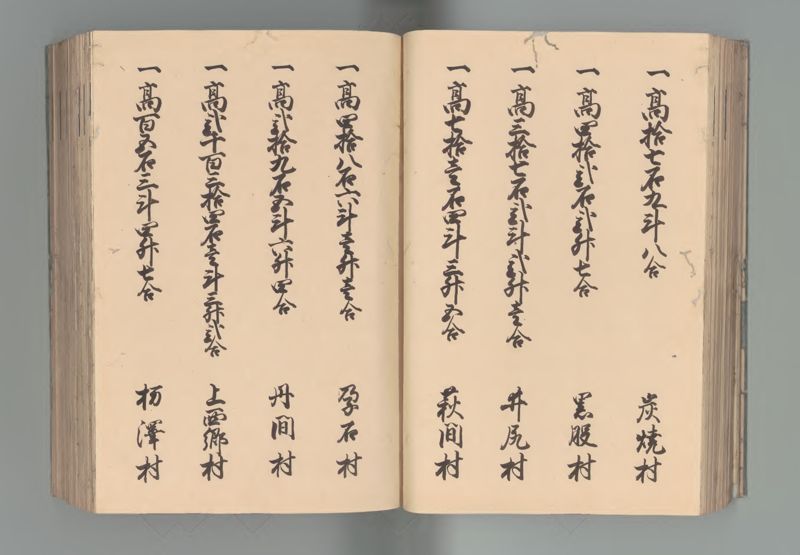 一高拾七石九斗八合 炭焼村
一高四拾弐石弐升七合 黒股村
一高三拾七石弐斗弐升壱合 井尻村
一高七拾壱石四斗三升五合 萩間村
一高四拾八石六斗壱升壱合 孕石村
一高弐拾九石五斗六升四合 丹間村
一高弐千百三拾四石壱斗三升弐合 上西郷村
一高百五石三斗四升七合 栃澤村